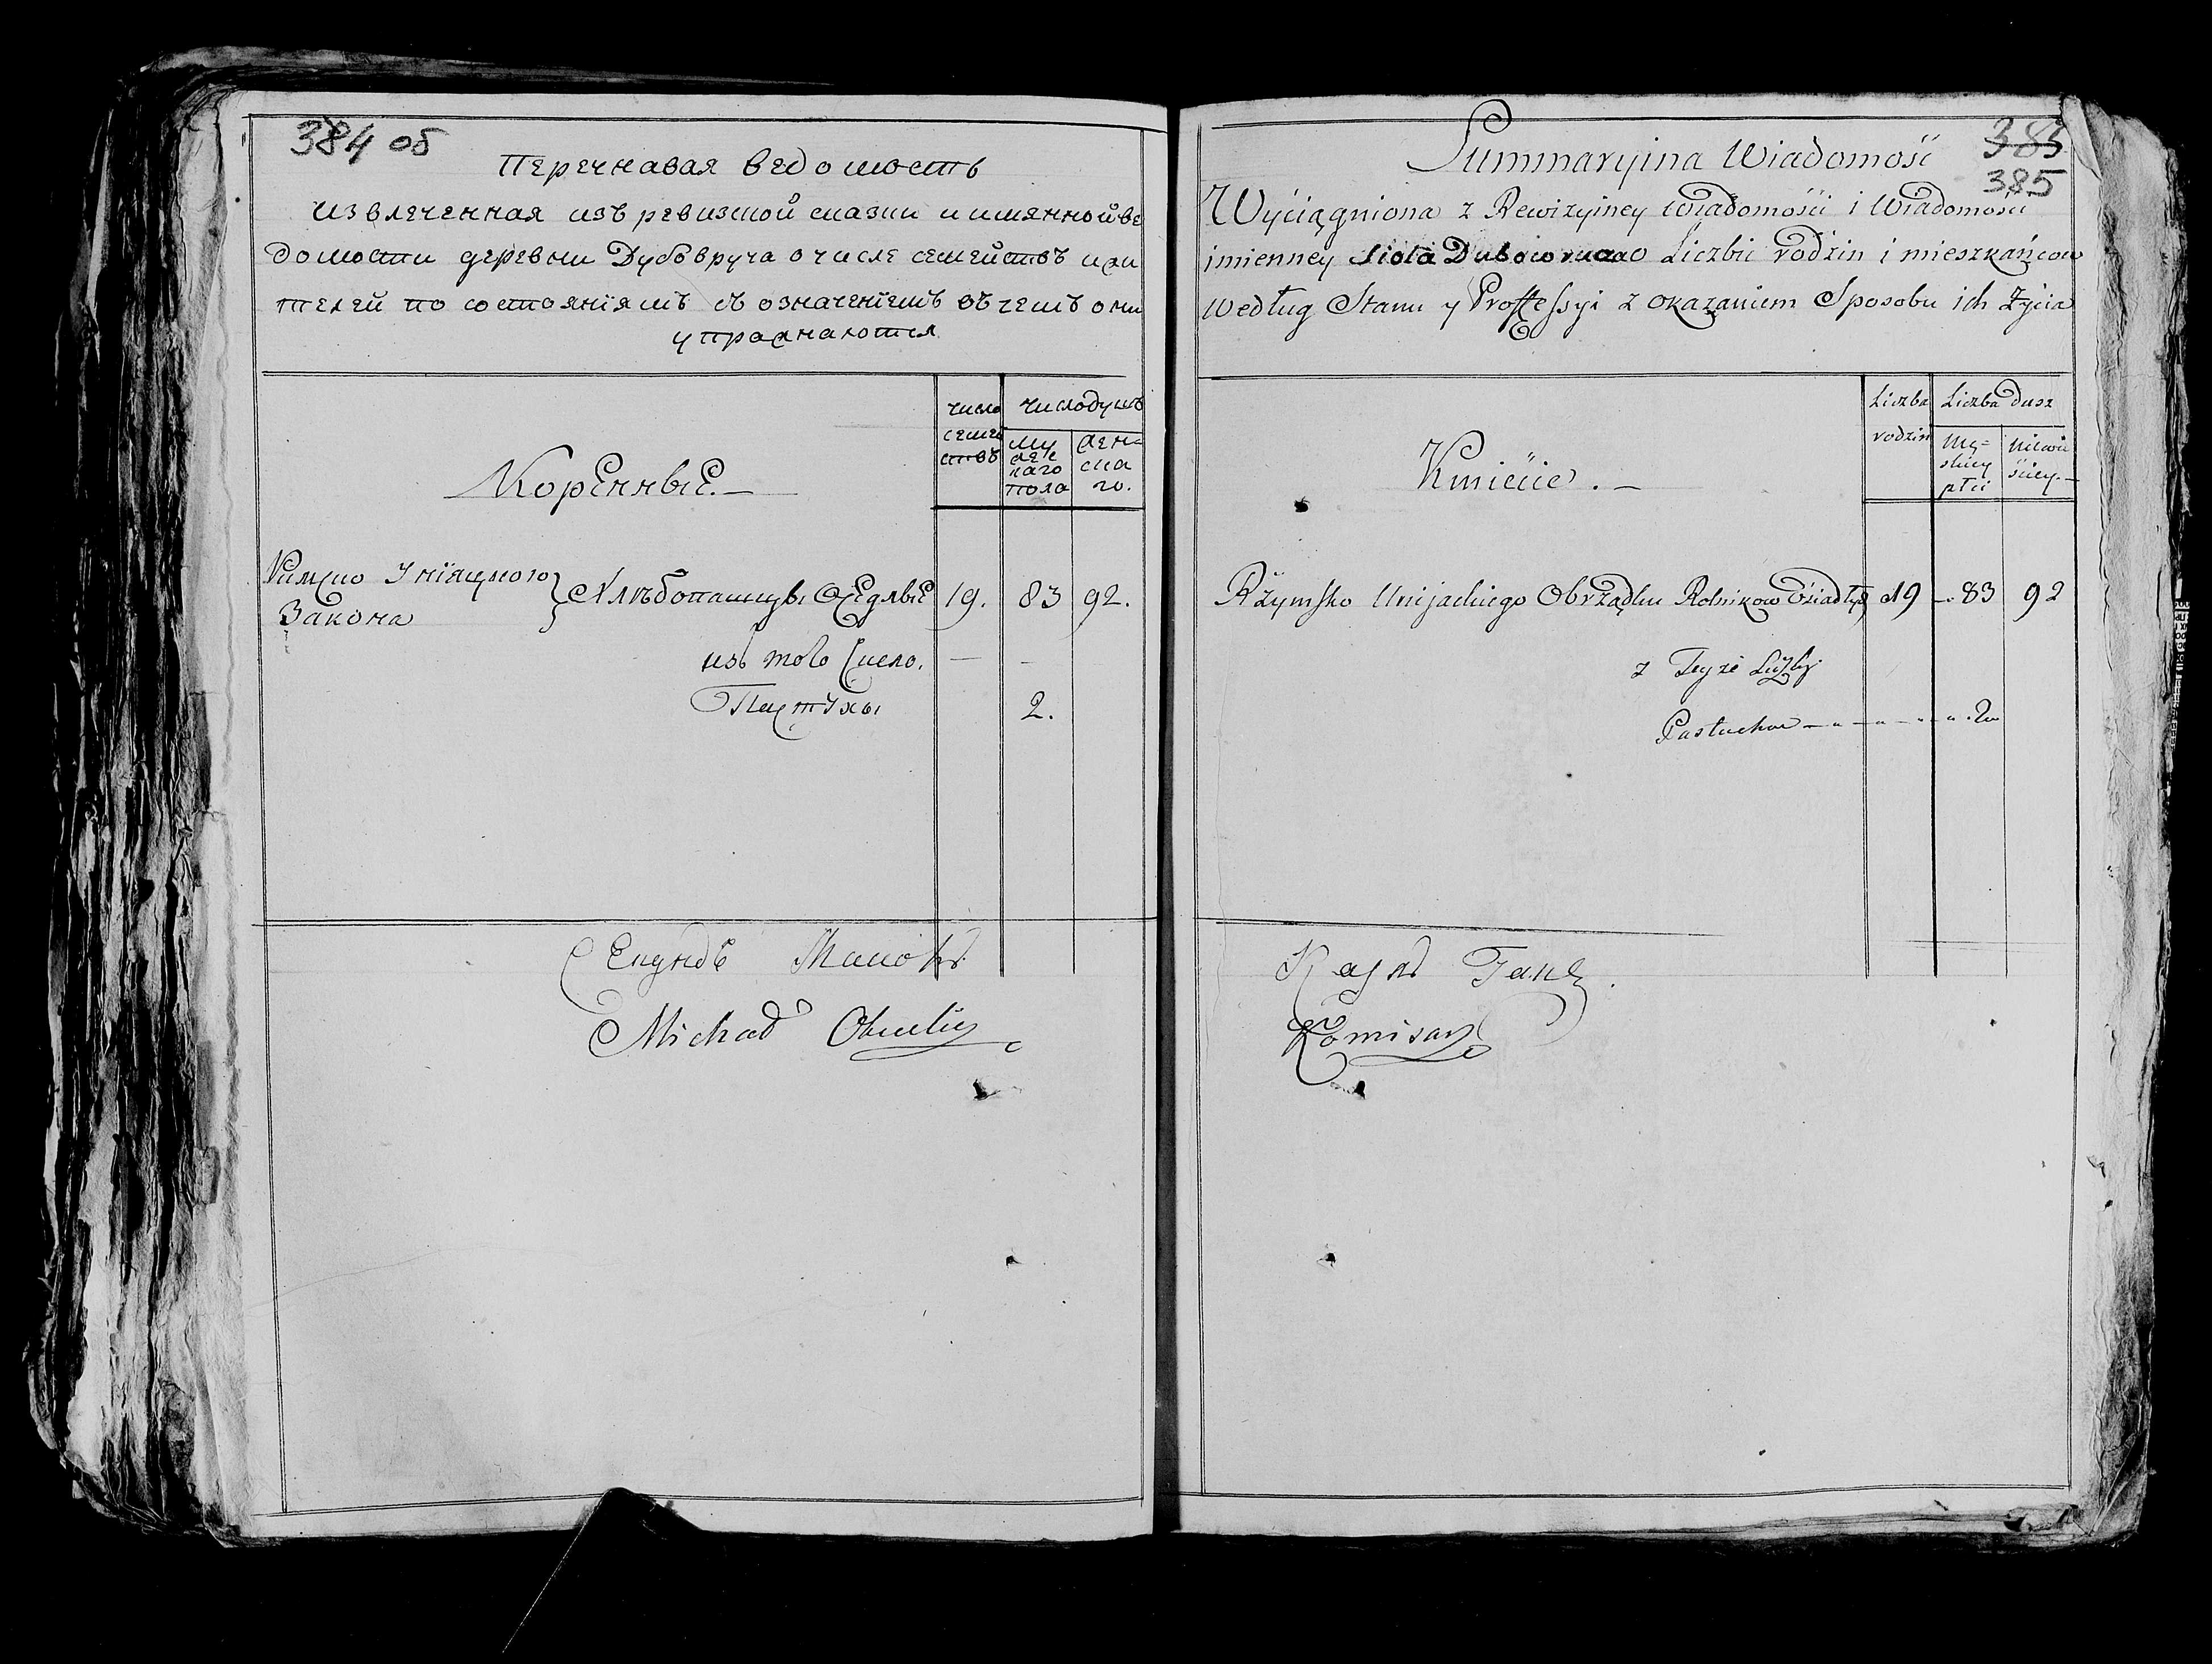 384 об
Перечнавая ведомость
извлеченная изъ ревизской сказки и имянной ве
домости деревни Дубовруча о числе семействъ и жи
телей по состояніямъ съ означеніемъ въ чемъ они
упражнаются
Коренные. —
число семействъ
число душъ
мужескаго пола
женскаго.
Римско Уніяцкого
Закона
} Хлѣбопашцы Оседлые 19. 83 92.
изъ того Числа. — —
Пастухы 2.
Секундъ
Michał
383
385
Summaryina Wiadomość
Wyciągniona z Rewizyiney Wiadomości i Wiadomości
imienney sioła Dubowrucza o Liczbie rodzin i mieszkańcow
według Stanu y Proffessyi z okazaniem Sposobu ich Życia
Kmiecie. —
Liczba rodzin
Liczba dusz
męskiey płci
niewieściey. —
Rzymsko Unijackiego Obrządku Rolnikow Osiadłych 19 83 92
z Teyże Liczby
Pastuchow — „ — „ — „ — „ . 2
Komisarz